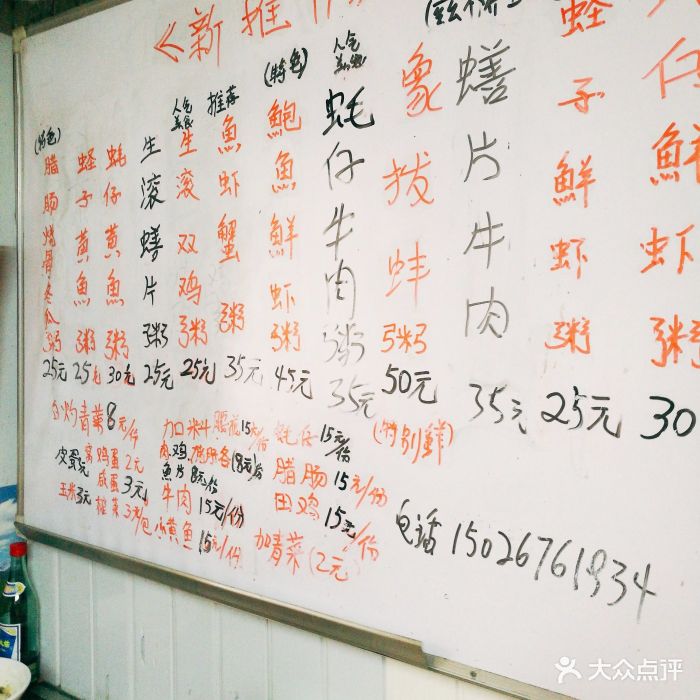 《新推
(特色)腊肠烤骨冬瓜粥25元
蛏子黄魚粥25元
蚝仔黄魚粥30元
生滚鳝片粥25元
人气美食生滚双鸡粥25元
推荐魚虾蟹粥35元
(特色)鲍魚鮮虾粥45元
人气蚝仔牛肉粥35元
象拔蚌粥50元
(特别鮮)
鳝片牛肉35元
蛏子鮮虾粥25元
仔鮮虾粥30
白灼青菜8元/份
皮蛋
鸡蛋2元
咸蛋3元
玉米3元
榨菜3元/包
加口料
15元/份
肉,鸡,
各8元/份
魚片8元/份
牛肉15元/份
小黄魚15元/份
蚝仔15元/份
腊肠15元/份
田鸡15元/份
加青菜(2元)
电话15026761934
大众点评